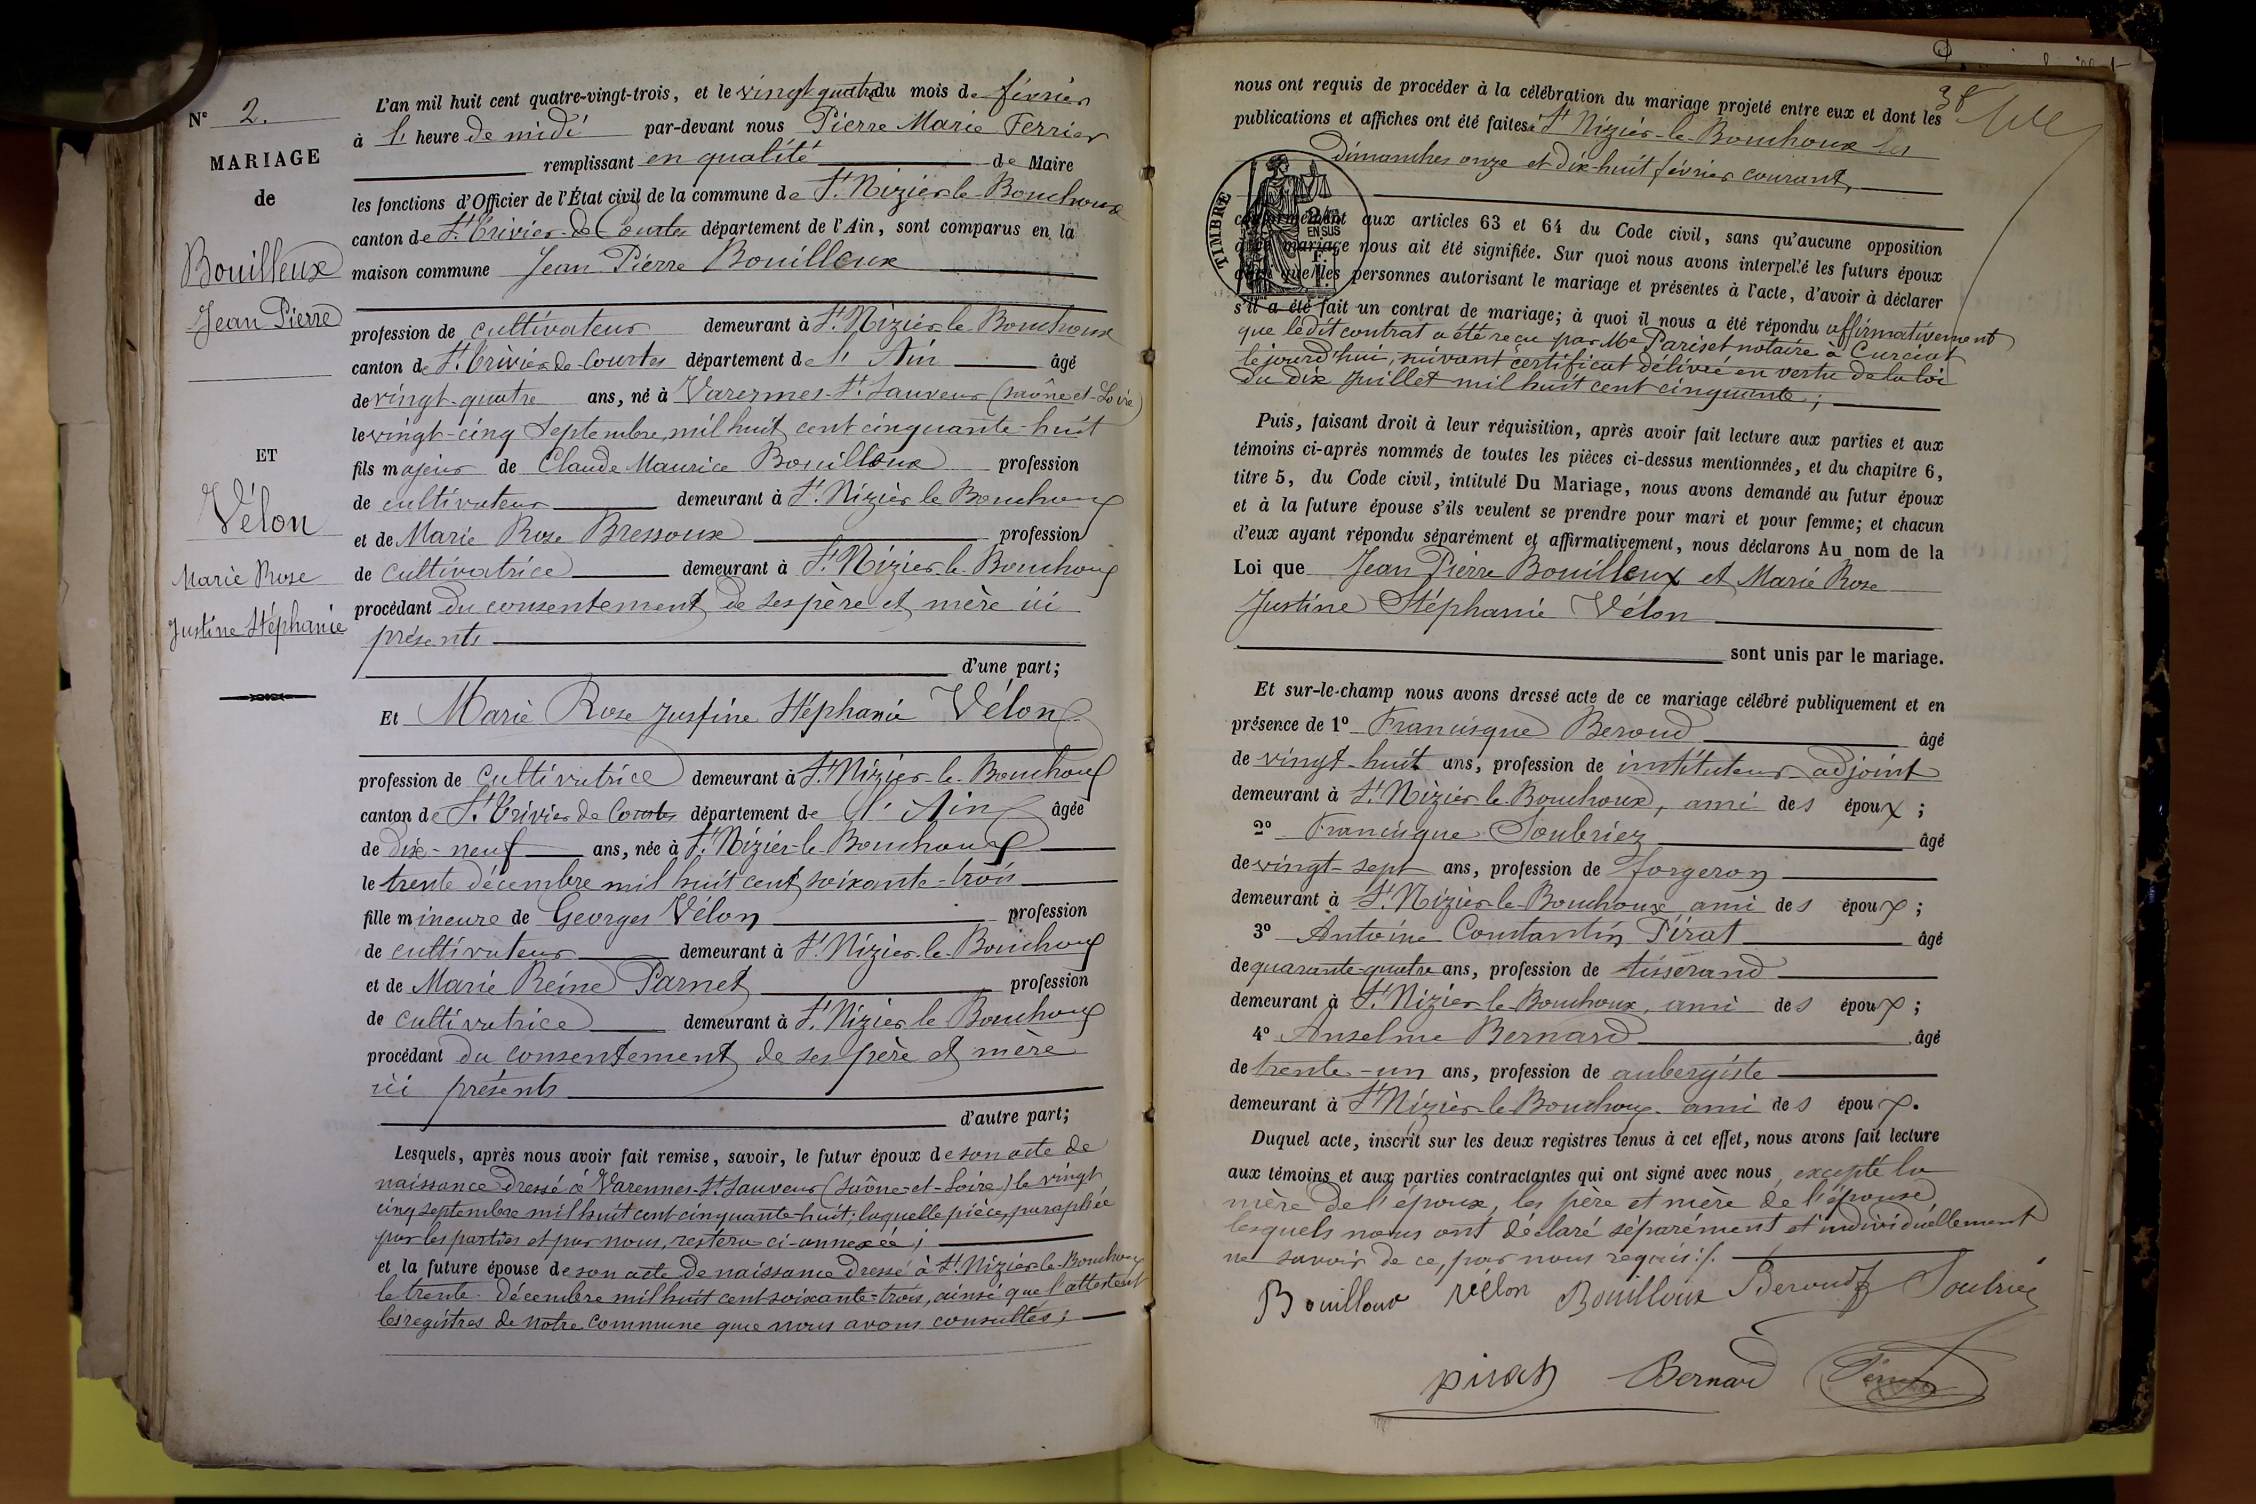 N° 2.
MARIAGE
de
Bouilleux
Jean Pierre
ET
Vélon
Marie Rose
Justine Stéphanie
L'an mil huit cent quatre-vingt-trois, et le vingt-quatre du mois de février
à l' heure de midi par-devant nous Pierre Marie Ferrier
remplissant en qualité de Maire
les fonctions d'Officier de l'État civil de la commune de St Nizier-le-Bouchoux
canton de St Trivier-de Courtes département de l'Ain, sont comparus en la
maison commune Jean Pierre Bouilleux
profession de cultivateur demeurant à St Nizier-le Bouchoux
canton de St Trivier-de-Courtes département de l' Ain âgé
de vingt-quatre ans, né à Varennes-St-Sauveur (Saône-et-Loire)
le vingt-cinq Septembre mil huit cent cinquante-huit
fils majeur de Claude Maurice Bouilleux profession
de cultivateur demeurant à St Nizier le Bouchoux
et de Marie Rose Bressoux profession
de cultivatrice demeurant à St Nizier-le-Bouchoux
procédant du consentement de ses père et mère ici
présents
d'une part;
Et Marie Rose Justine Stéphanie Vélon
profession de cultivatrice demeurant à St Nizier-le-Bouchoux
canton de St Trivier de Courtes département de l' Ain âgée
de dix-neuf ans, née à St Nizier-le-Bouchoux
le trente décembre mil huit cent soixante-trois
fille mineure de Georges Vélon profession
de cultivateur demeurant à St Nizier-le-Bouchoux
et de Marie Reine Parnet profession
de cultivatrice demeurant à St Nizier le Bouchoux
procédant du consentement de ses père et mère
ici présents
d'autre part;
Lesquels, après nous avoir fait remise, savoir, le futur époux de son acte de
naissance dressé à Varennes-St-Sauveur (Saône-et-Loire) le vingt
cinq septembre mil huit cent cinquante-huit; laquelle pièce, paraphée
par les parties et par nous, restera ci-annexée;
et la future épouse de son acte de naissance dressé à St Nizier-le-Bouchoux
le trente Décembre mil huit cent soixante-trois, ainsi que l'attestent
les registres de notre commune que nous avons consultés;
38
nous ont requis de procéder à la célébration du mariage projeté entre eux et dont les
publications et affiches ont été faites à St Nizier-le-Bouchoux les
Dimanches onze et dix-huit février courant,
TIMBRE
EN SUS
conformément aux articles 63 et 64 du Code civil, sans qu'aucune opposition
mariage nous ait été signifiée. Sur quoi nous avons interpelé les futurs époux
que les personnes autorisant le mariage et présentes à l'acte, d'avoir à déclarer
s'il a été fait un contrat de mariage; à quoi il nous a été répondu affirmativement
que ledit contrat a été reçu par Me Pariset notaire à Curciat
le jourd'hui, suivant certificat délivré en vertu de la loi
du dix Juillet mil huit cent cinquante;
Puis, faisant droit à leur réquisition, après avoir fait lecture aux parties et aux
témoins ci-après nommés de toutes les pièces ci-dessus mentionnées, et du chapitre 6,
titre 5, du Code civil, intitulé Du Mariage, nous avons demandé au futur époux
et à la future épouse s'ils veulent se prendre pour mari et pour femme; et chacun
d'eux ayant répondu séparément et affirmativement, nous déclarons Au nom de la
Loi que Jean Pierre Bouilleux et Marie Rose
Justine Stéphanie Vélon
sont unis par le mariage.
Et sur-le-champ nous avons dressé acte de ce mariage célébré publiquement et en
présence de 1° Francisque Beroud âgé
de vingt-huit ans, profession de instituteur adjoint
demeurant à St Nizier-le-Bouchoux, ami des époux;
2° Francisque Soubriez âgé
de vingt-sept ans, profession de forgeron
demeurant à St Nizier-le-Bouchoux ami des époux;
3° Antoine Constantin Pirat âgé
de quarante-quatre ans, profession de tisserand
demeurant à St Nizier-le-Bouchoux, ami des époux;
4° Anselme Bernard âgé
de trente-un ans, profession de aubergiste
demeurant à St Nizier-le-Bouchoux ami des époux.
Duquel acte, inscrit sur les deux registres tenus à cet effet, nous avons fait lecture
aux témoins et aux parties contractantes qui ont signé avec nous, excepté la
mère de l'époux, les père et mère de l'épouse
lesquels nous ont déclaré séparément et individuellement
ne savoir de ce, par nous requis./.
Bouilloux Vélon Bouilloux Beroud Soubriez
pirat Bernard Ferrier